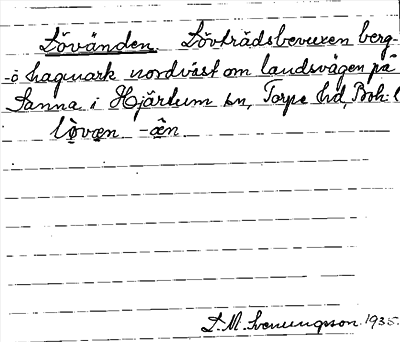 Lövänden. Lövträdsbevuxen berg-
-ö hagmark nordväst om landsvägen på
Sanna i Hjärtum sn, Torpe hd, Boh: l
lövæn -æn
D. M. Svenungsson. 1935.